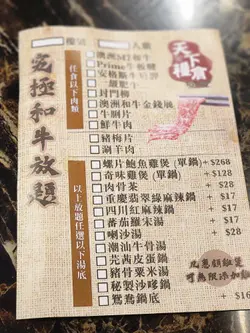 樓號
人數
天下
樓食
究極和牛放題
任食以下肉類
澳洲M7板牛
Prime牛板腱
安格斯牛
一級肥牛
封門柳
澳洲和牛金錢𦟌
牛脷片
鮮牛肉
豬梅片
涮羊肉
以上放題任選以下湯底
螺片鮑魚雞煲 (單鍋) +$268
奇味雞煲 (單鍋) +$128
肉骨茶 +$28
重慶翡翠綠麻辣鍋 +$17
四川紅麻辣鍋 +$17
番茄羅宋湯 +$17
喇沙湯 +$28
潮汕牛骨湯
芫茜皮蛋鍋
豬骨粟米湯
秘製沙嗲鍋
鴛鴦鍋底
凡惠顧雞煲
可無限添加雞
+$16